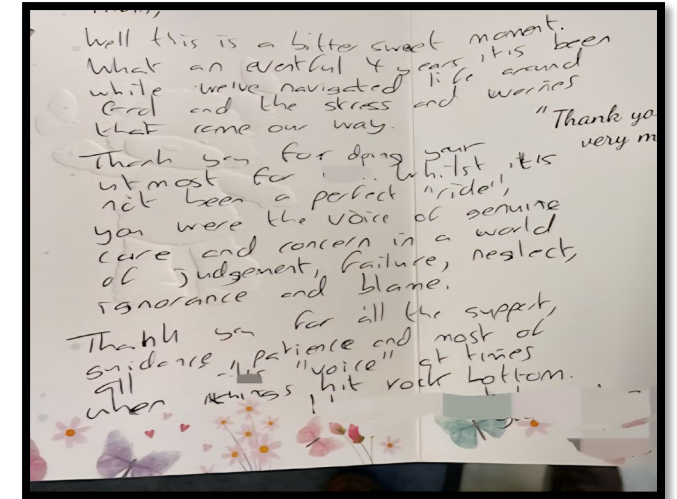 Well this is a bitter sweet moment.
What an eventful 4 years it's been
while we've navigated life around
and the stress and worries
that came our way.
"Thank yo
very m
Thank you for doing your
utmost for Whilst it's
not been a perfect "ride",
you were the voice of genuine
care and concern in a world
of judgement, failure, neglect,
ignorance and blame.
Thank you for all the support,
guidance, patience and most of
all "voice" at times
when things hit rock bottom.